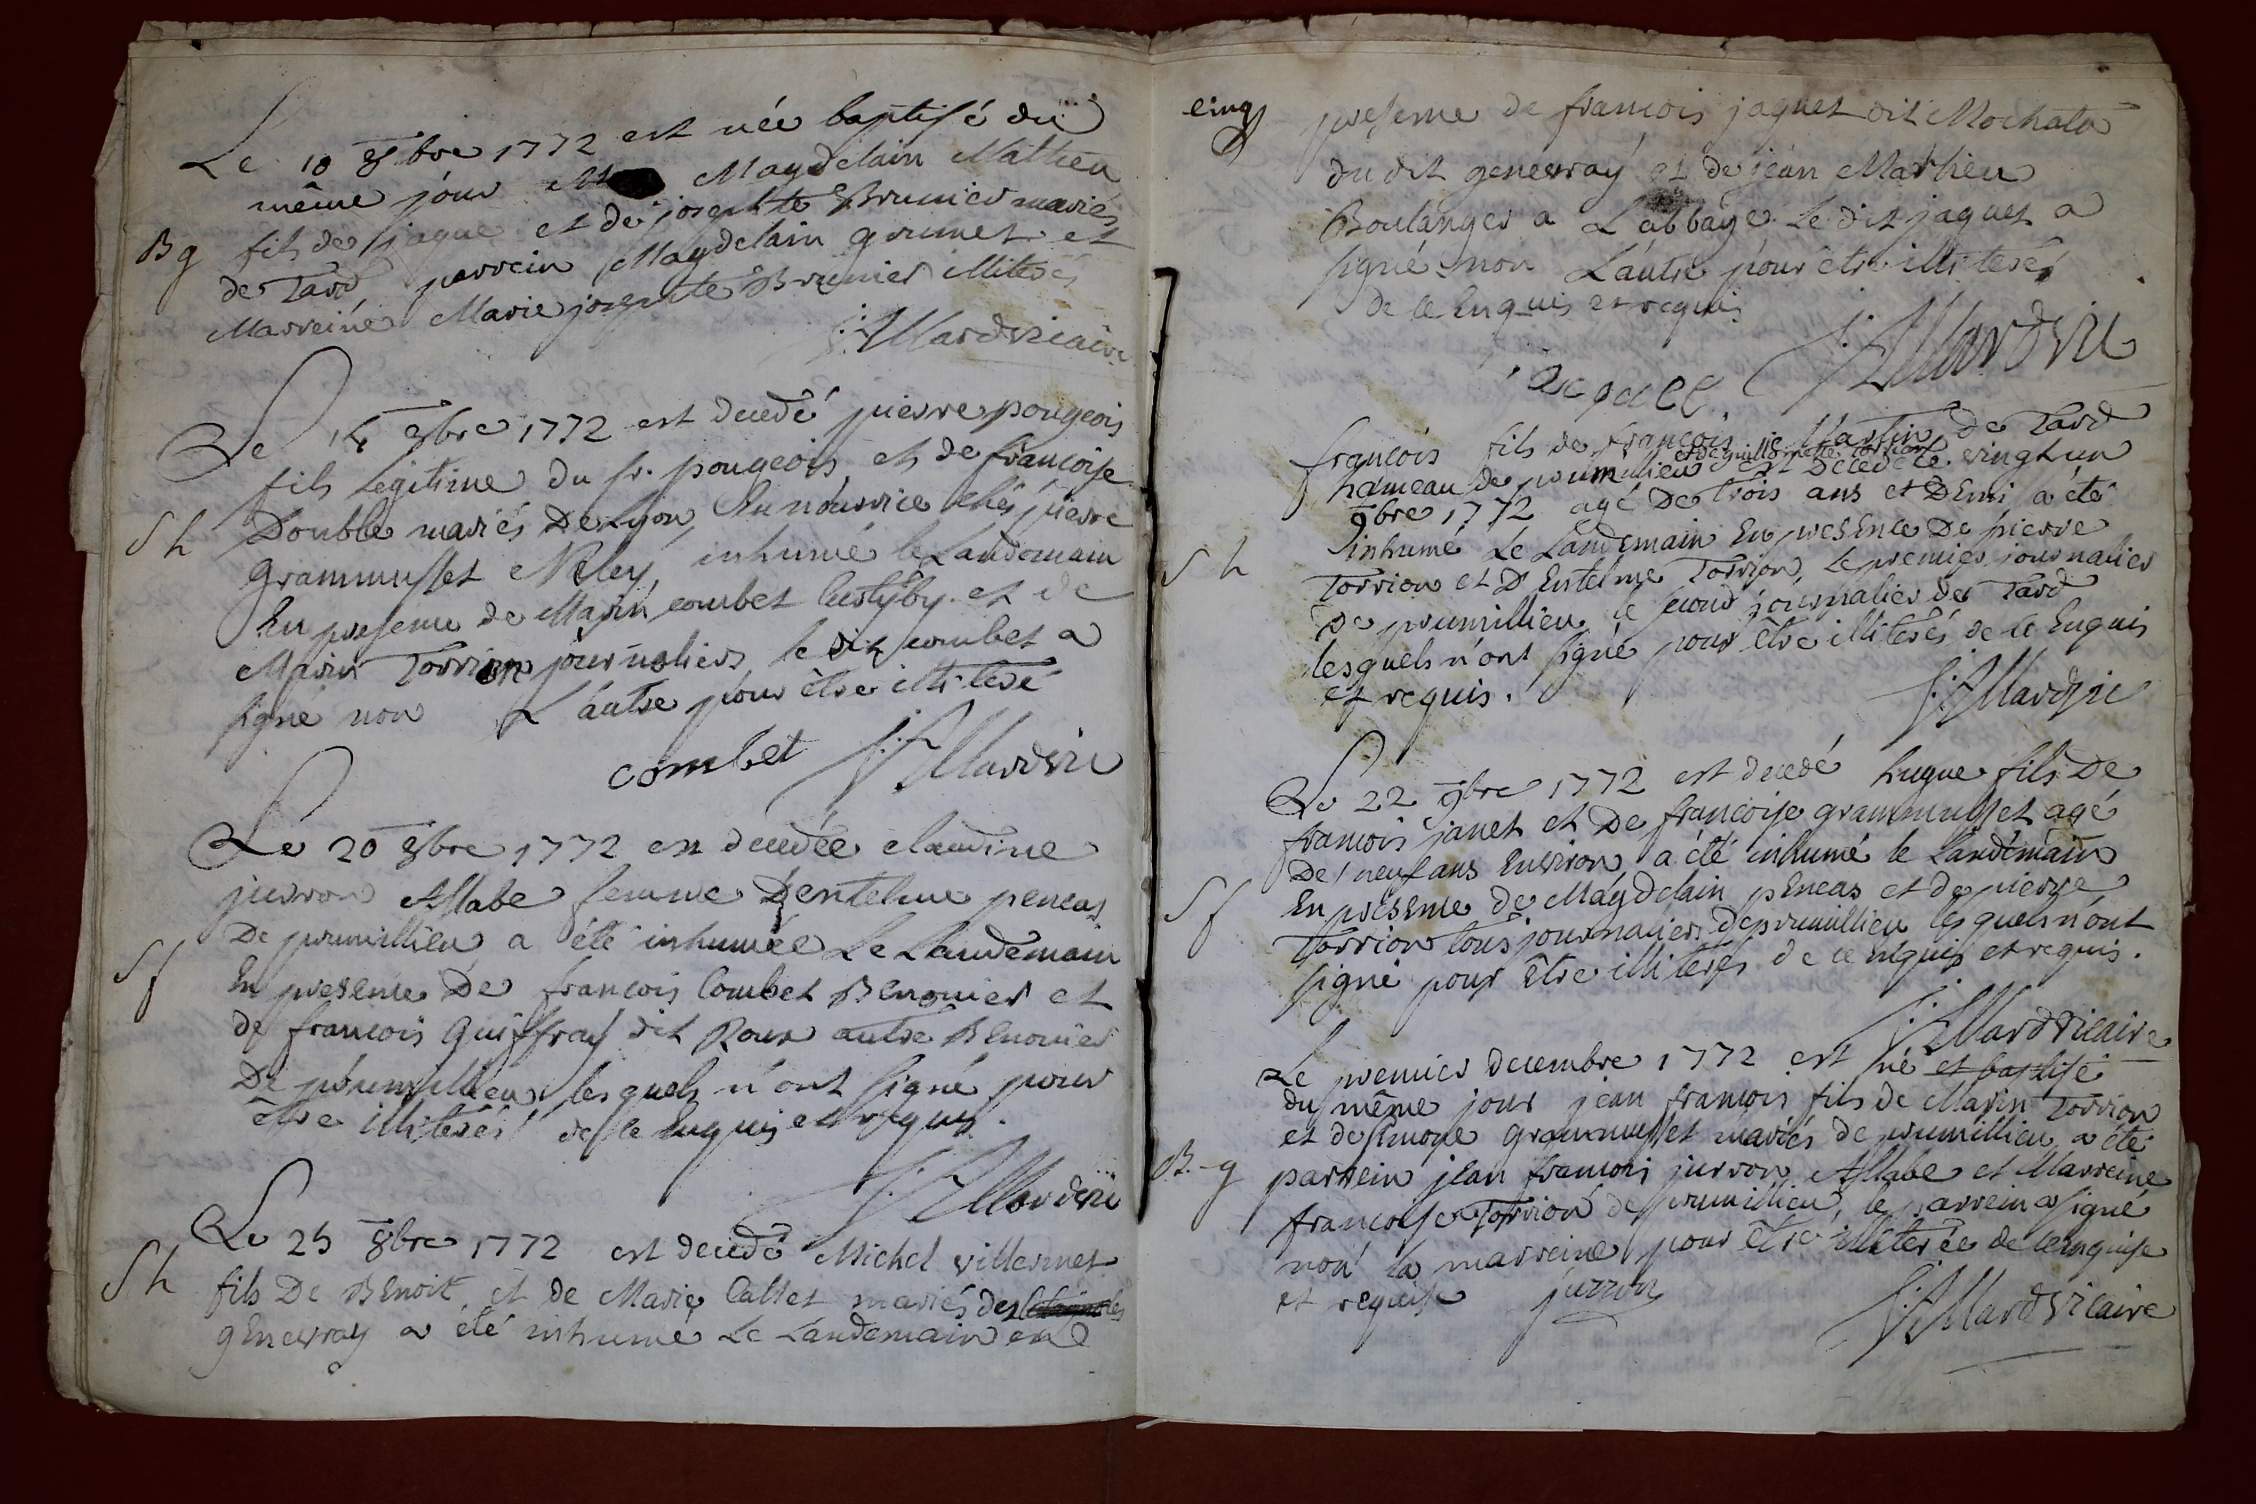 Le 10 8bre 1772 est née baptisé du
même jour Magdelain Mathieu
Bg fils de jaque et de josephte Brunier mariés
de Tard parrein Magdelain grumet et
Marreine Marie josephte Brunier illiterés
Mard vicaire
Le 14 8bre 1772 est decedé pierre pougeois
fils legitime du sr. pougeois et de françoise
Sh Double mariés De Lyon, En nourrice chés pierre
grammusset Neley, inhumé le Landemain
En presence de Marin combet et de
Marin Torrion journaliers le dit combet a
signe non L'autre pour être illiteré
combet Mardvic
Le 20 8bre 1772 est decedée claudine
jurron Allabe femme Dentelme peneas
De prumillieu a été inhumée Le Landemain
Sf En presence De francois Combet Benonier et
de francois Guiffray dit Roux autre Benonier
De prumillieu lesquels n'ont signé pour
être illiterés de ce Enquis et requis.
Mardvic
Le 25 8bre 1772 est decedé Michel villermet
Sh fils De Benoit et de Marie Callet mariés des
genevray a été inhumé Le Landemain en
cinq presence de francois jaquet dit Mochata
du dit genevray et de jean Mathieu
Boulanger a L'abbaye Le dit jaquet a
signé non L'autre pour être illiteré
de ce Enquis et requis
Mardvic
françois fils de françois Martin de Tard
et de guillermette torrion
hameau de prumillieu est decedé le vingt un
9bre 1772 agé De trois ans et Demi a été
inhumé Le Landemain En presence De pierre
Sh Torrion et D'Entelme Torrion, le premier journalier
De prumillieu le second journalier de Tard
lesquels n'ont signé pour être illiterés de ce Enquis
et requis.
Mardvic
Le 22 9bre 1772 est decedé hugue fils De
francois janet et De francoise grammusset agé
De neuf ans Environ a été inhumé le Landemain
Sf En presence de Magdelain peneas et de pierre
Torrion tous journaliers de prumillieu lesquels n'ont
signé pour être illiterés de ce enquis et requis.
Mardvicaire
Le premier decembre 1772 est né et baptisé
du même jour jean francois fils de Marin Torrion
et de grammusset mariés de prumillieu a été
B-g parrein jean francois jurron Allabe et Marreine
francoise Torrion de prumillieu, le parrein a signé
non la marreine pour être illiterée de ce enquise
et requise jurron
Mardvicaire